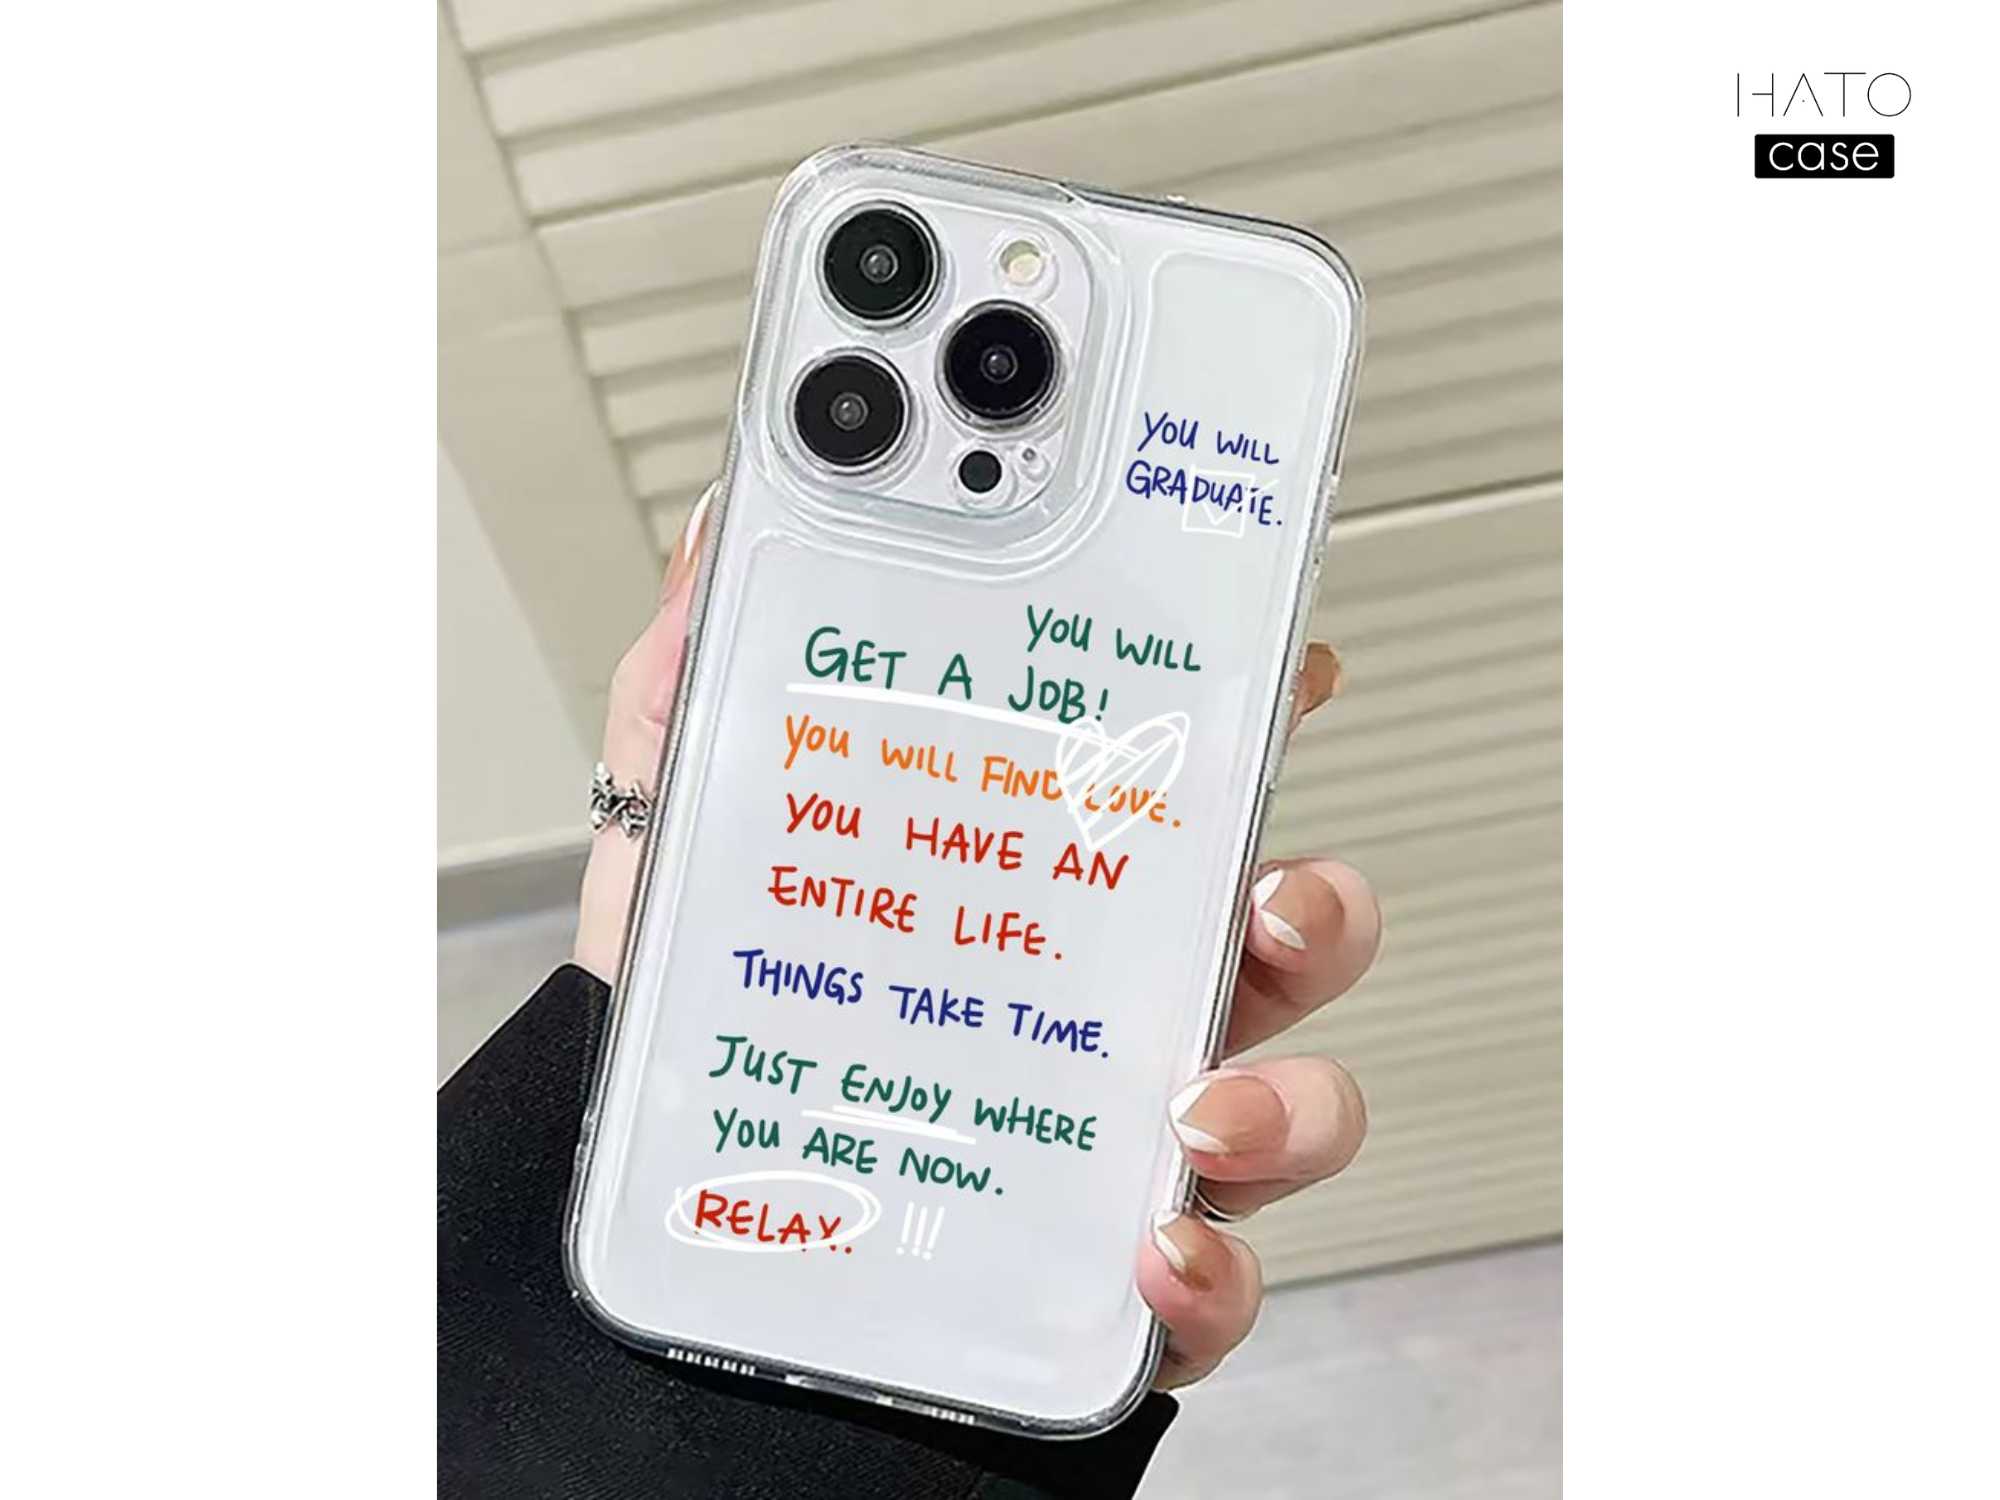 HATO
case
YOU WILL
GRADUATE.
YOU WILL
GET A JOB!
YOU WILL FIND LOVE.
YOU HAVE AN
ENTIRE LIFE.
THINGS TAKE TIME.
JUST ENJOY WHERE
YOU ARE NOW.
RELAX. !!!